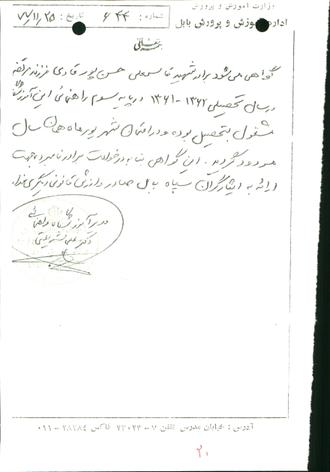 وزارت آموزش و پرورش
شماره : ۶۴۴ تاریخ : ۷۷/۱۱/۲۵
اداره آموزش و پرورش بابل
بسمه تعالی
گواهی می شود برادر شهید قاسمعلی حسن پور قادی فرزند
در سال تحصیلی ۱۳۶۲-۱۳۶۱ در پایه سوم راهنمائی این
مشغول به تحصیل بوده و در امتحان شهریور ماه همان سال
مردود گردید. این گواهی بنا به درخواست برادر نامبرده جهت
ارائه به ایثارگران سپاه بابل صادر و ارزش قانونی دیگری ندارد
مدیر آموزشگاه راهنمائی
دکتر علی شریعتی
آدرس : خیابان مدرس تلفن ۷-۲۳۰۲۳ فاکس ۲۸۲۸۴-۰۱۱
۲۰